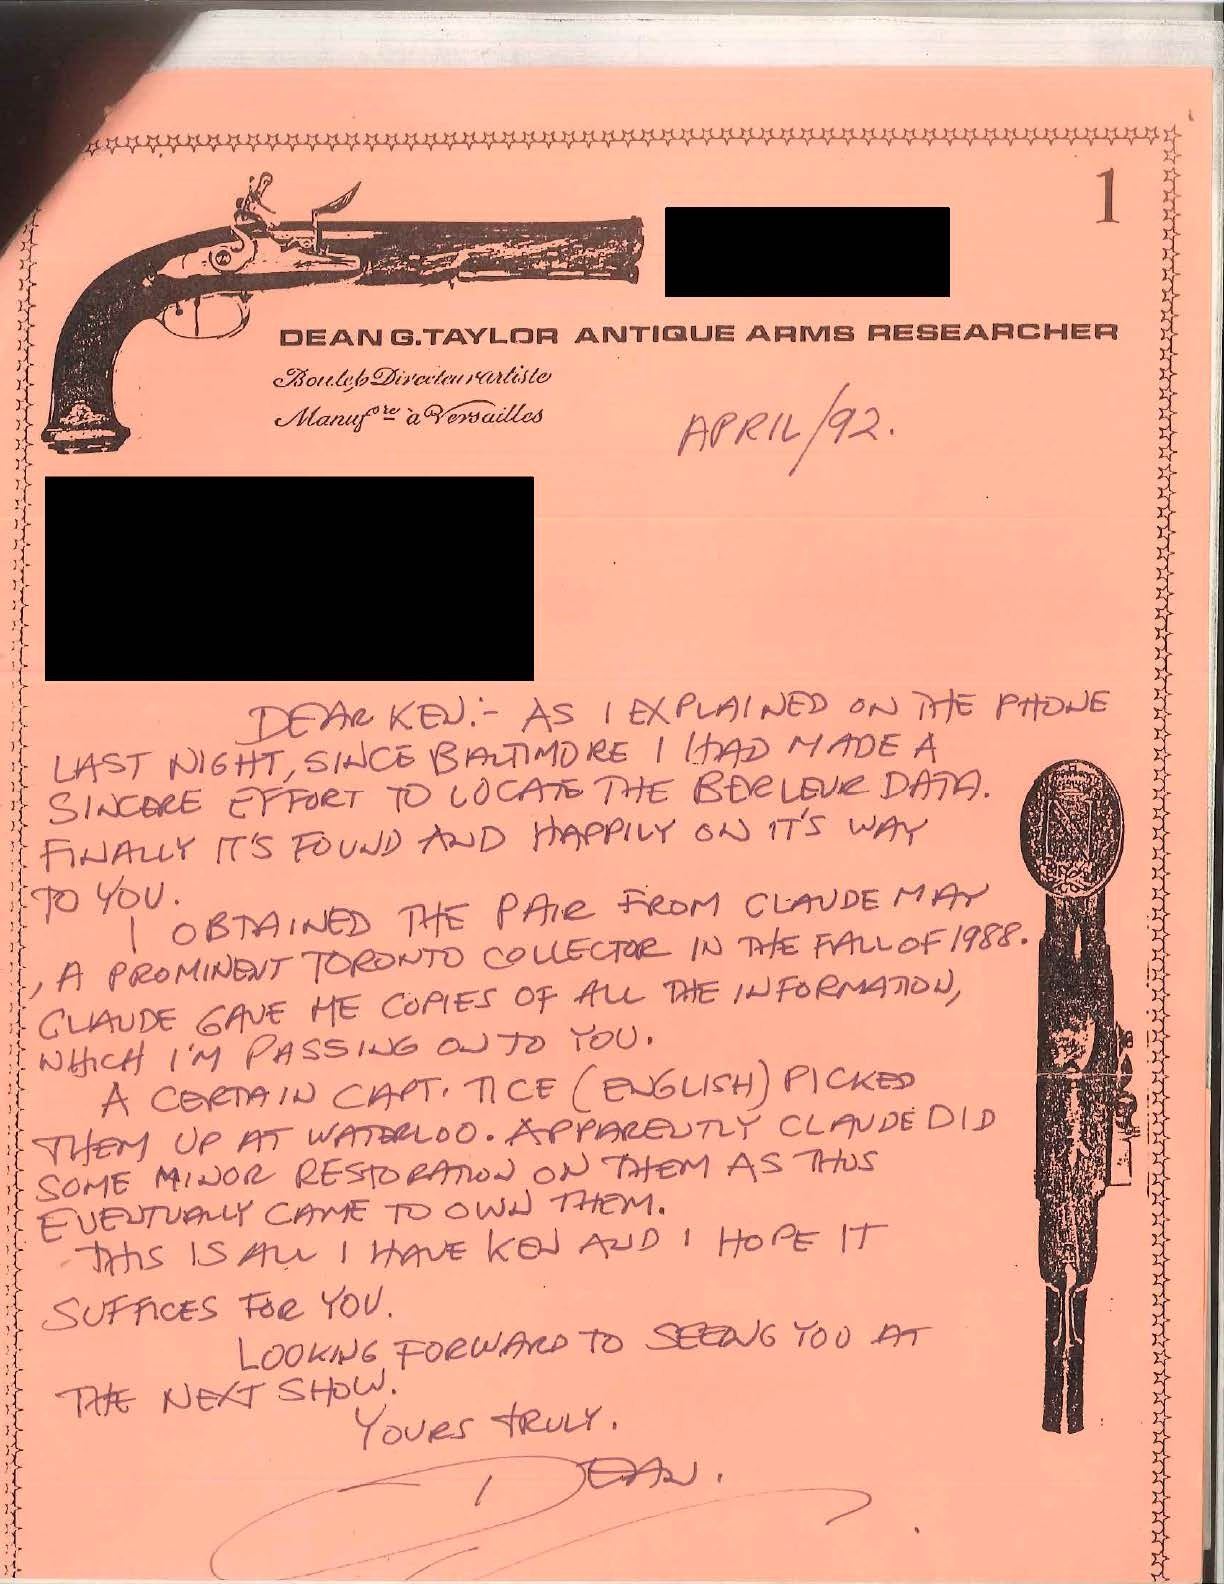 1
DEAN G. TAYLOR ANTIQUE ARMS RESEARCHER
Boutet Directeur artiste
Manuf^ore à Versailles
APRIL/92.
DEAR KEN:- AS I EXPLAINED ON THE PHONE
LAST NIGHT, SINCE BALTIMORE I HAD MADE A
SINCERE EFFORT TO LOCATE THE BERLEUR DATA.
FINALLY IT'S FOUND AND HAPPILY ON IT'S WAY
TO YOU.
I OBTAINED THE PAIR FROM CLAUDE MAY
, A PROMINENT TORONTO COLLECTOR IN THE FALL OF 1988.
CLAUDE GAVE ME COPIES OF ALL THE INFORMATION,
WHICH I'M PASSING ON TO YOU.
A CERTAIN CAPT. TICE (ENGLISH) PICKED
THEM UP AT WATERLOO. APPARENTLY CLAUDE DID
SOME MINOR RESTORATION ON THEM AS THUS
EVENTUALLY CAME TO OWN THEM.
THIS IS ALL I HAVE KEN AND I HOPE IT
SUFFICES FOR YOU.
LOOKING FORWARD TO SEEING YOU AT
THE NEXT SHOW.
YOURS TRULY.
DEAN.
N